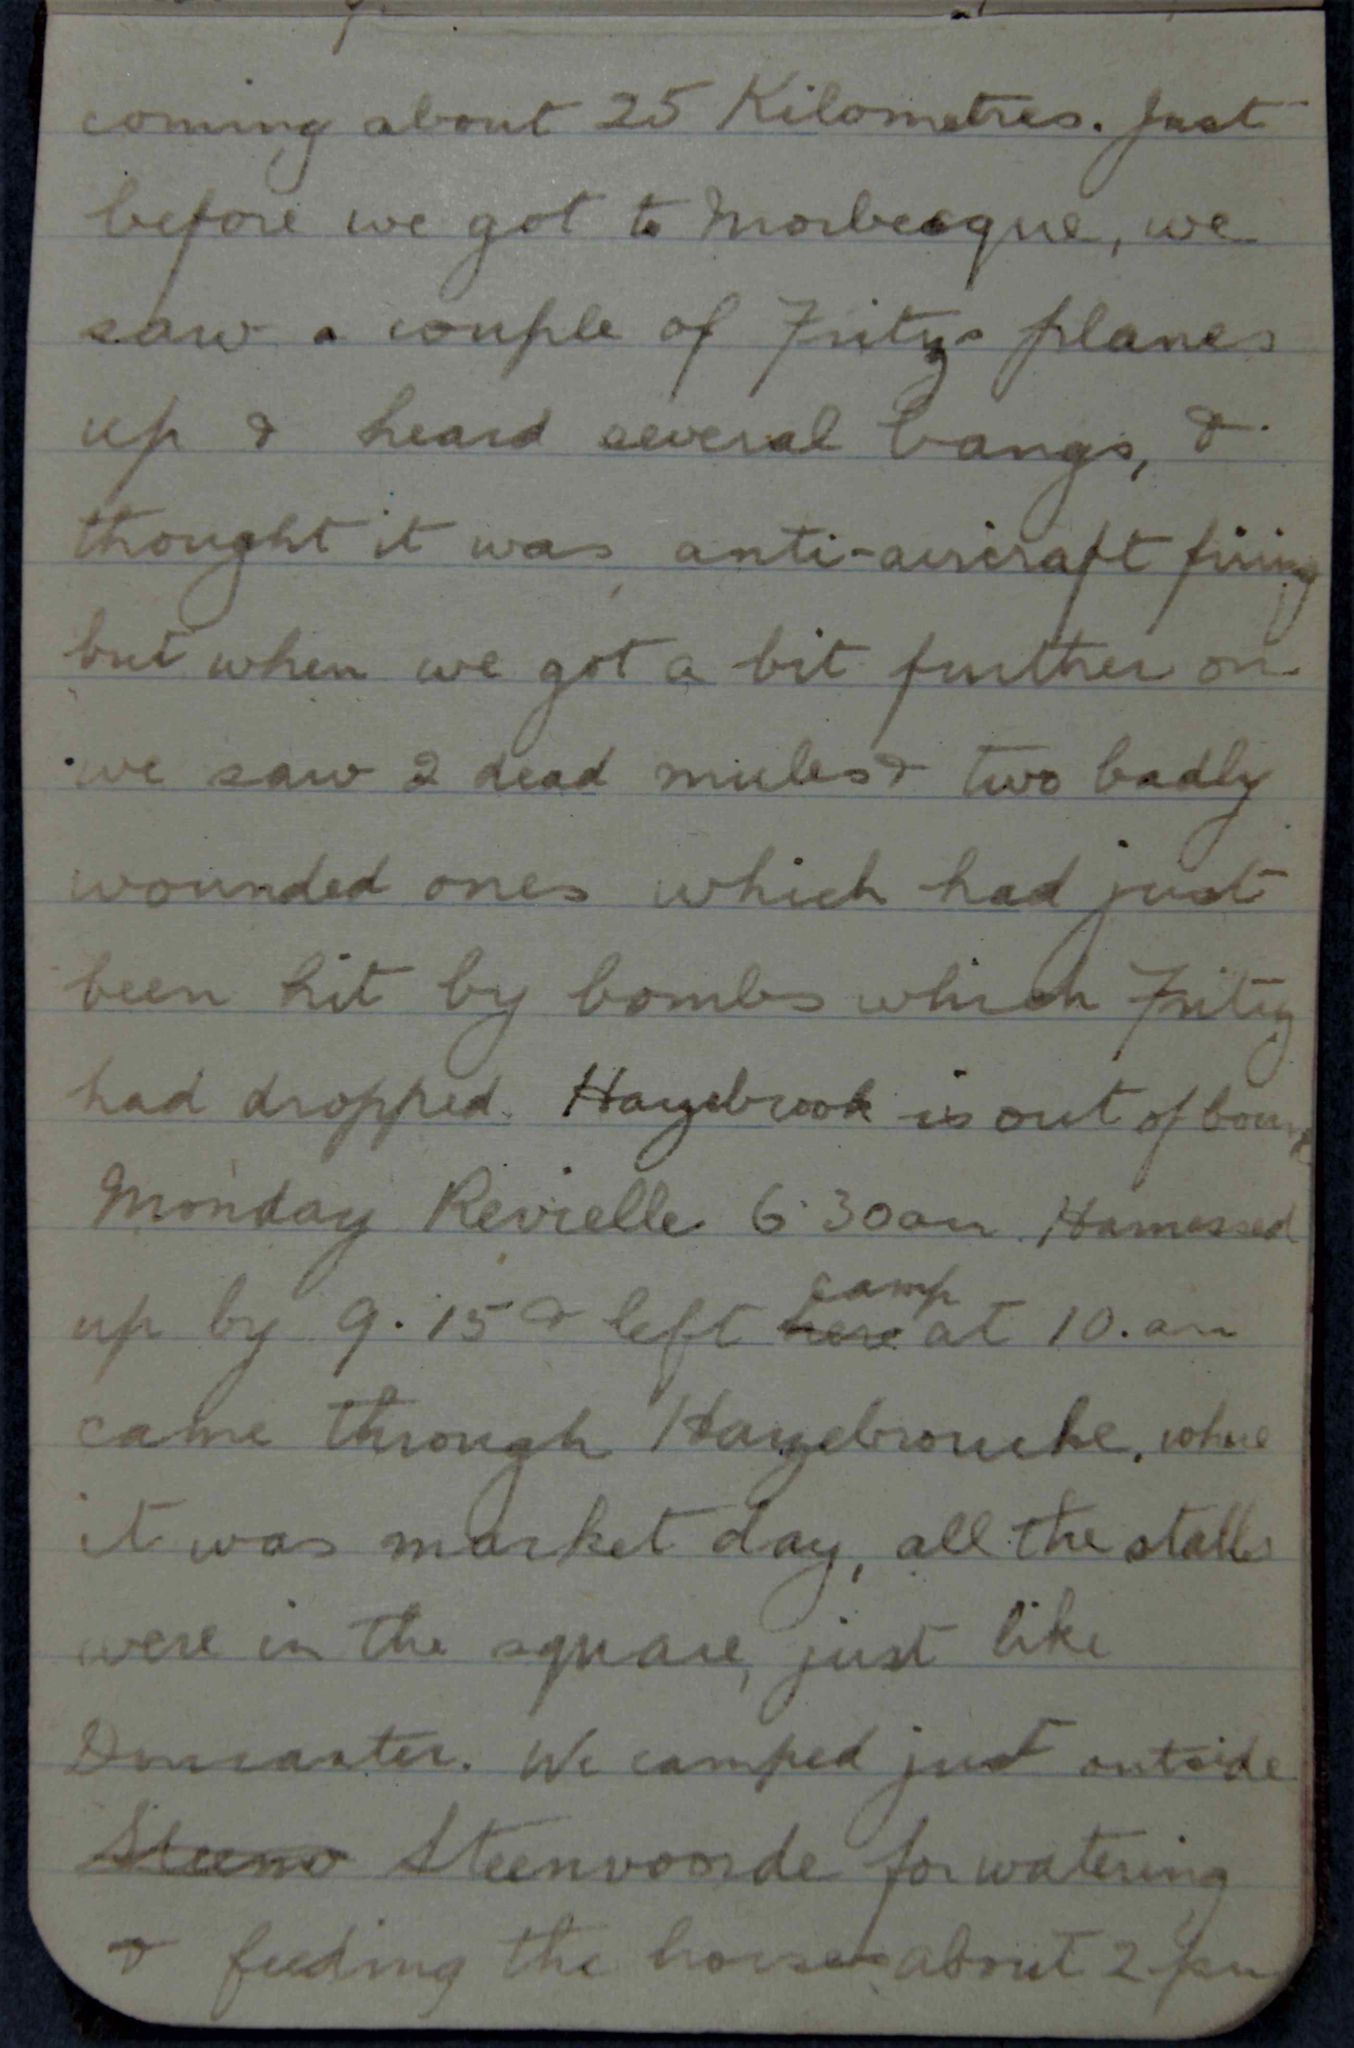 coming about 25 Kilometres. Just
before we got to Morbecque, we
saw a couple of Fritzs planes
up & heard several bangs, &
thought it was anti-aircraft firing
but when we got a bit further on
we saw 2 dead mules & two badly
wounded ones which had just
been hit by bombs which Fritz
had dropped. Hazebrook is out of bounds
Monday Revielle 6.30am Harnessed
up by 9.15 & left here camp at 10.am
came through Hazebroucke, where
it was market day, all the stalls
were in the square, just like
Doncaster. We camped just outside
Steenv Steenvoorde for watering
& feeding the horses about 2 pm